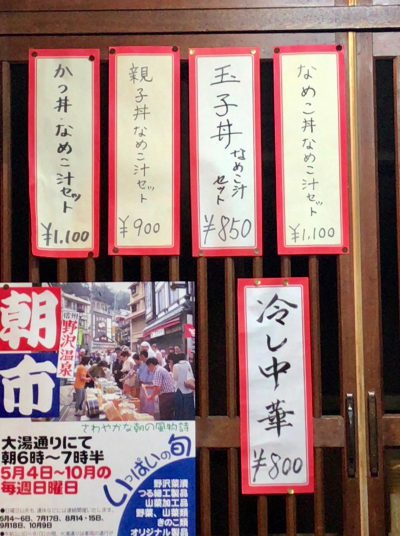 かつ丼・なめこ汁セット
¥1,100
親子丼なめこ汁セット
¥900
玉子丼なめこ汁セット
¥850
なめこ丼なめこ汁セット
¥1,100
冷し中華
¥800
朝市
信州
野沢温泉
さわやかな朝の風物詩
大湯通りにて
朝6時〜7時半
5月4日〜10月の
毎週日曜日
いっぱいの旬
野沢菜漬
つる細工製品
山菜加工品
野菜、山菜類
きのこ類
オリジナル製品
5月4〜6日、7月17日、8月14・15日、
9月18日、10月9日